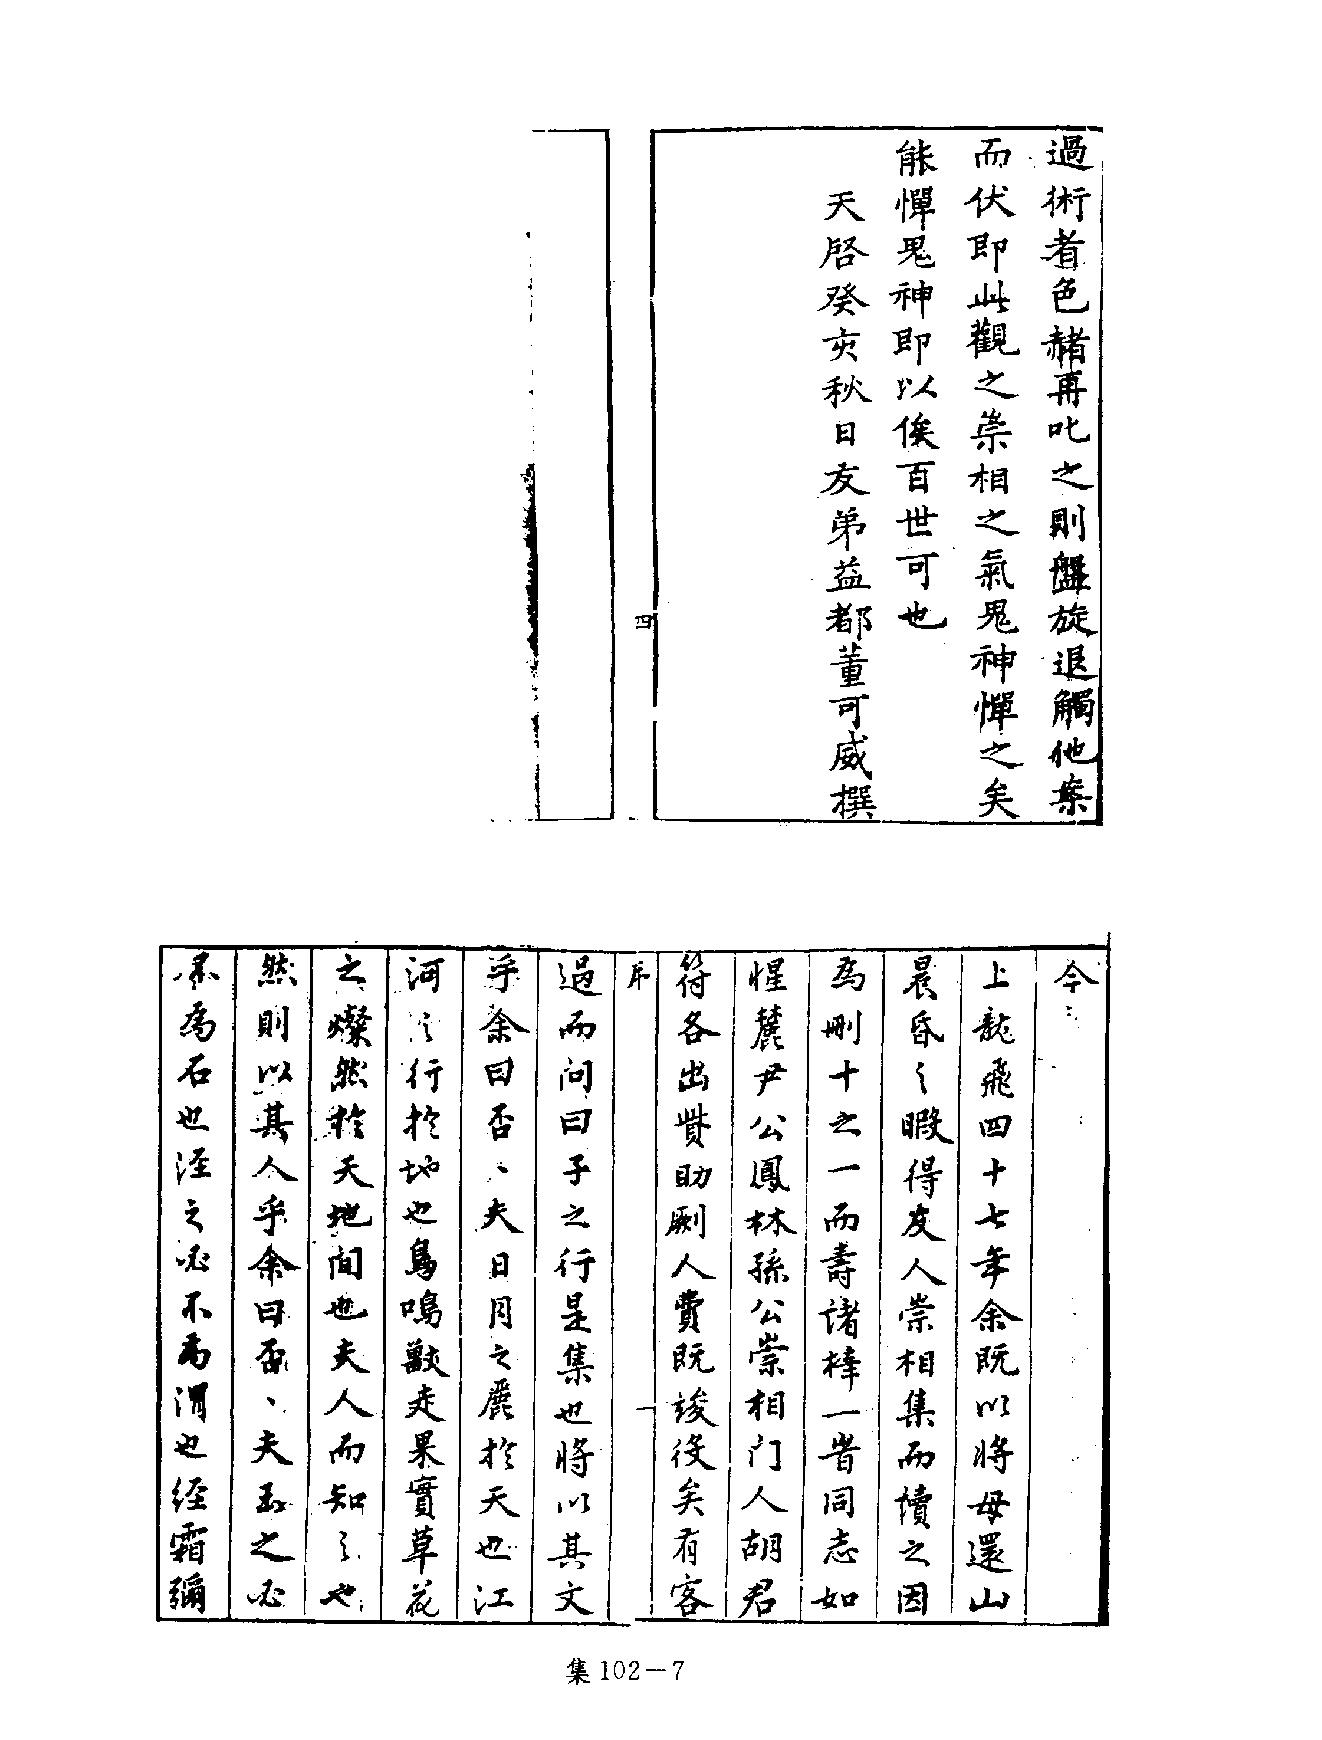 過術者色赭再叱之則盤旋退觸他案
而伏即此觀之崇相之氣鬼神憚之矣
能憚鬼神即以俟百世可也
天啓癸亥秋日友弟益都董可威撰
四
今
上龍飛四十七年余既以將母還山
晨昏之暇得友人崇相集而讀之因
為刪十之一而壽諸梓一省同志如
惺麓尹公鳳林孫公崇相门人胡君
符各出貲助劂人費既竣役矣有客
序
一
過而问曰子之行是集也將以其文
乎余曰否、夫日月之麗於天也江
河之行於地也鳥鳴獸走果實草花
之燦然於天地间也夫人而知之也
然則以其人乎余曰否、夫玉之必
不為石也涇之必不為渭也经霜彌
集102-7